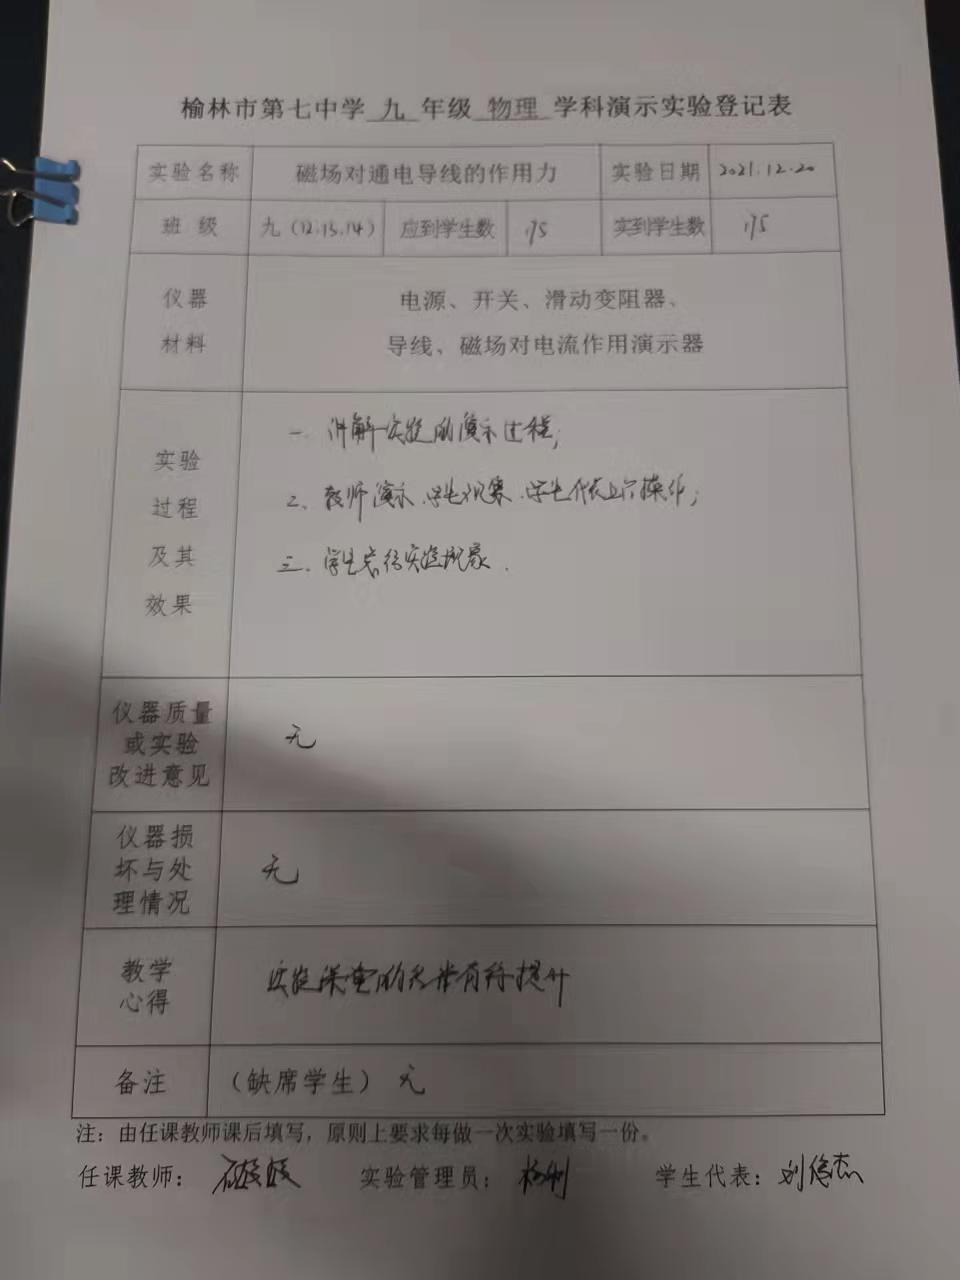 榆林市第七中学 九 年级 物理 学科演示实验登记表
实验名称 磁场对通电导线的作用力 实验日期 2021.12.20
班 级 九（12.13.14） 应到学生数 175 实到学生数 175
仪器
材料
电源、开关、滑动变阻器、
导线、磁场对电流作用演示器
实验
过程
及其
效果
一. 讲解实验的演示过程；
2、教师演示.学生观察.学生代表上台操作；
三、学生总结实验现象.
仪器质量
或实验
改进意见
无
仪器损
坏与处
理情况
无
教学
心得
实验课堂的 有待提升
备注 （缺席学生） 无
注：由任课教师课后填写，原则上要求每做一次实验填写一份。
任课教师： 实验管理员： 学生代表：刘俊杰